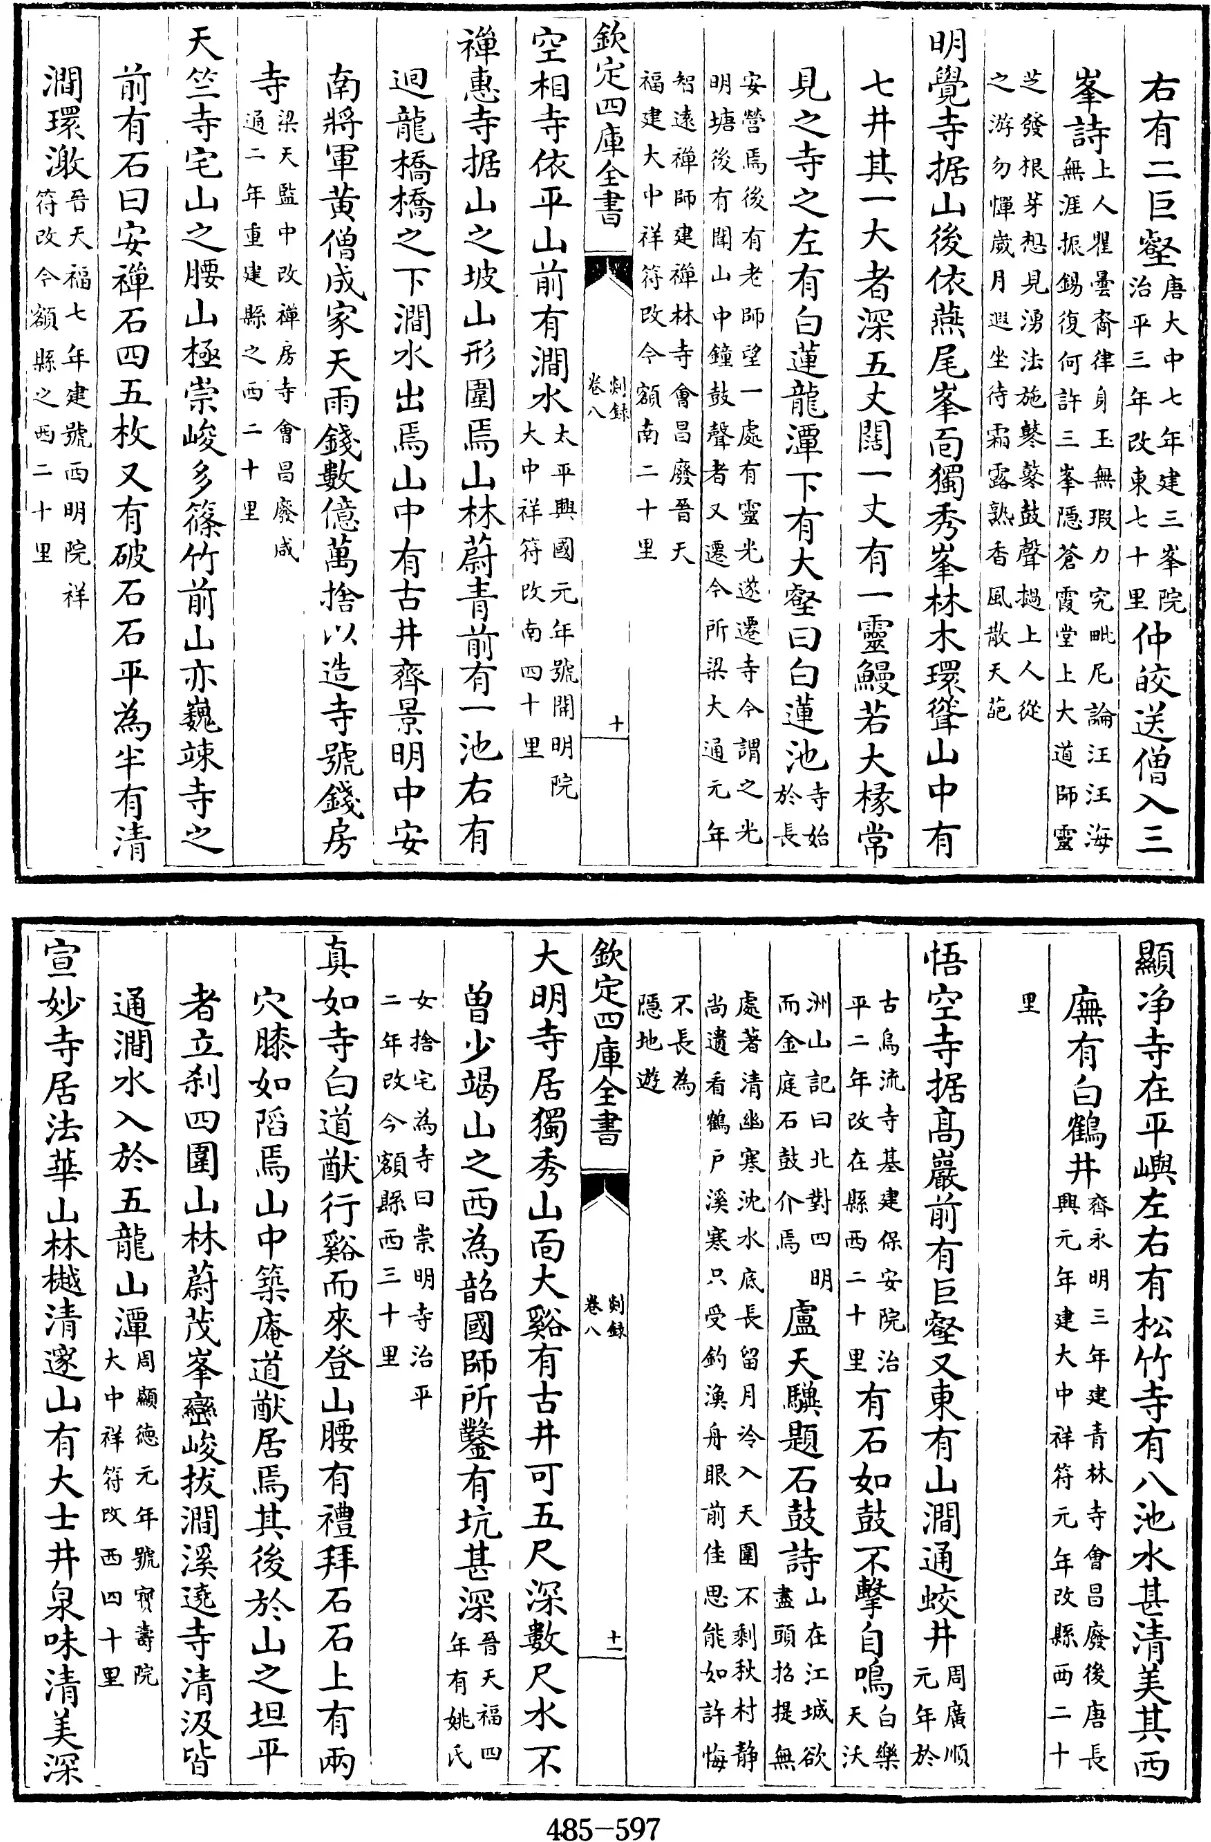 右有二巨壑唐大中七年建三峯院治平三年改東七十里仲皎送僧入三
峯詩上人瞿曇裔律身玉無瑕力究毗尼論汪汪海無涯振錫復何許三峯隱蒼霞堂上大道師靈
芝發根芽想見湧法施鼕鼕鼓聲撾上人從之游勿憚嵗月遐坐待霜露熟香風散天葩
明覺寺据山後依燕尾峯面獨秀峯林木環聳山中有
七井其一大者深五丈闊一丈有一靈鰻若大椽常
見之寺之左有白蓮龍潭下有大壑曰白蓮池寺始於長
安營焉後有老師望一處有靈光遂遷寺今謂之光明塘後有聞山中鐘鼓聲者又遷今所梁大通元年
智遠禪師建禪林寺會昌廢晉天福建大中祥符改今額南二十里
欽定四庫全書 剡録卷八 十
空相寺依平山前有澗水太平興國元年號開明院大中祥符改南四十里
禪惠寺据山之坡山形圍焉山林蔚青前有一池右有
迴龍橋橋之下澗水出焉山中有古井齊景明中安
南將軍黄僧成家天雨錢數億萬捨以造寺號錢房
寺梁天監中改禪房寺會昌廢咸通二年重建縣之西二十里
天竺寺宅山之腰山極崇峻多篠竹前山亦巍竦寺之
前有石曰安禪石四五枚又有破石石平為半有清
澗環激晉天福七年建號西明院祥符改今額縣之西二十里
顯净寺在平嶼左右有松竹寺有八池水甚清美其西
廡有白鶴井齊永明三年建青林寺會昌廢後唐長興元年建大中祥符元年改縣西二十
里
悟空寺据髙巖前有巨壑又東有山澗通蛟井周廣順元年於
古烏流寺基建保安院治平二年改在縣西二十里有石如鼓不擊自鳴白樂天沃
洲山記曰北對四明而金庭石鼓介焉盧天驥題石鼓詩山在江城欲盡頭招提無
處著清幽寒沈水底長留月冷入天圍不剩秋村静尚遺看鶴戸溪寒只受釣漁舟眼前佳思能如許悔
不長為隠地遊
欽定四庫全書 剡録卷八 十一
大明寺居獨秀山面大谿有古井可五尺深數尺水不
曽少竭山之西為韶國師所鑿有坑甚深晉天福四年有姚氏
女捨宅為寺曰崇明寺治平二年改今額縣西三十里
真如寺白道猷行谿而來登山腰有禮拜石石上有兩
穴膝如䧟焉山中築庵道猷居焉其後於山之坦平
者立刹四圍山林蔚茂峯巒峻拔澗溪遶寺清汲皆
通澗水入於五龍山潭周顯徳元年號寶壽院大中祥符改西四十里
宣妙寺居法華山林樾清邃山有大士井泉味清美深
485-597